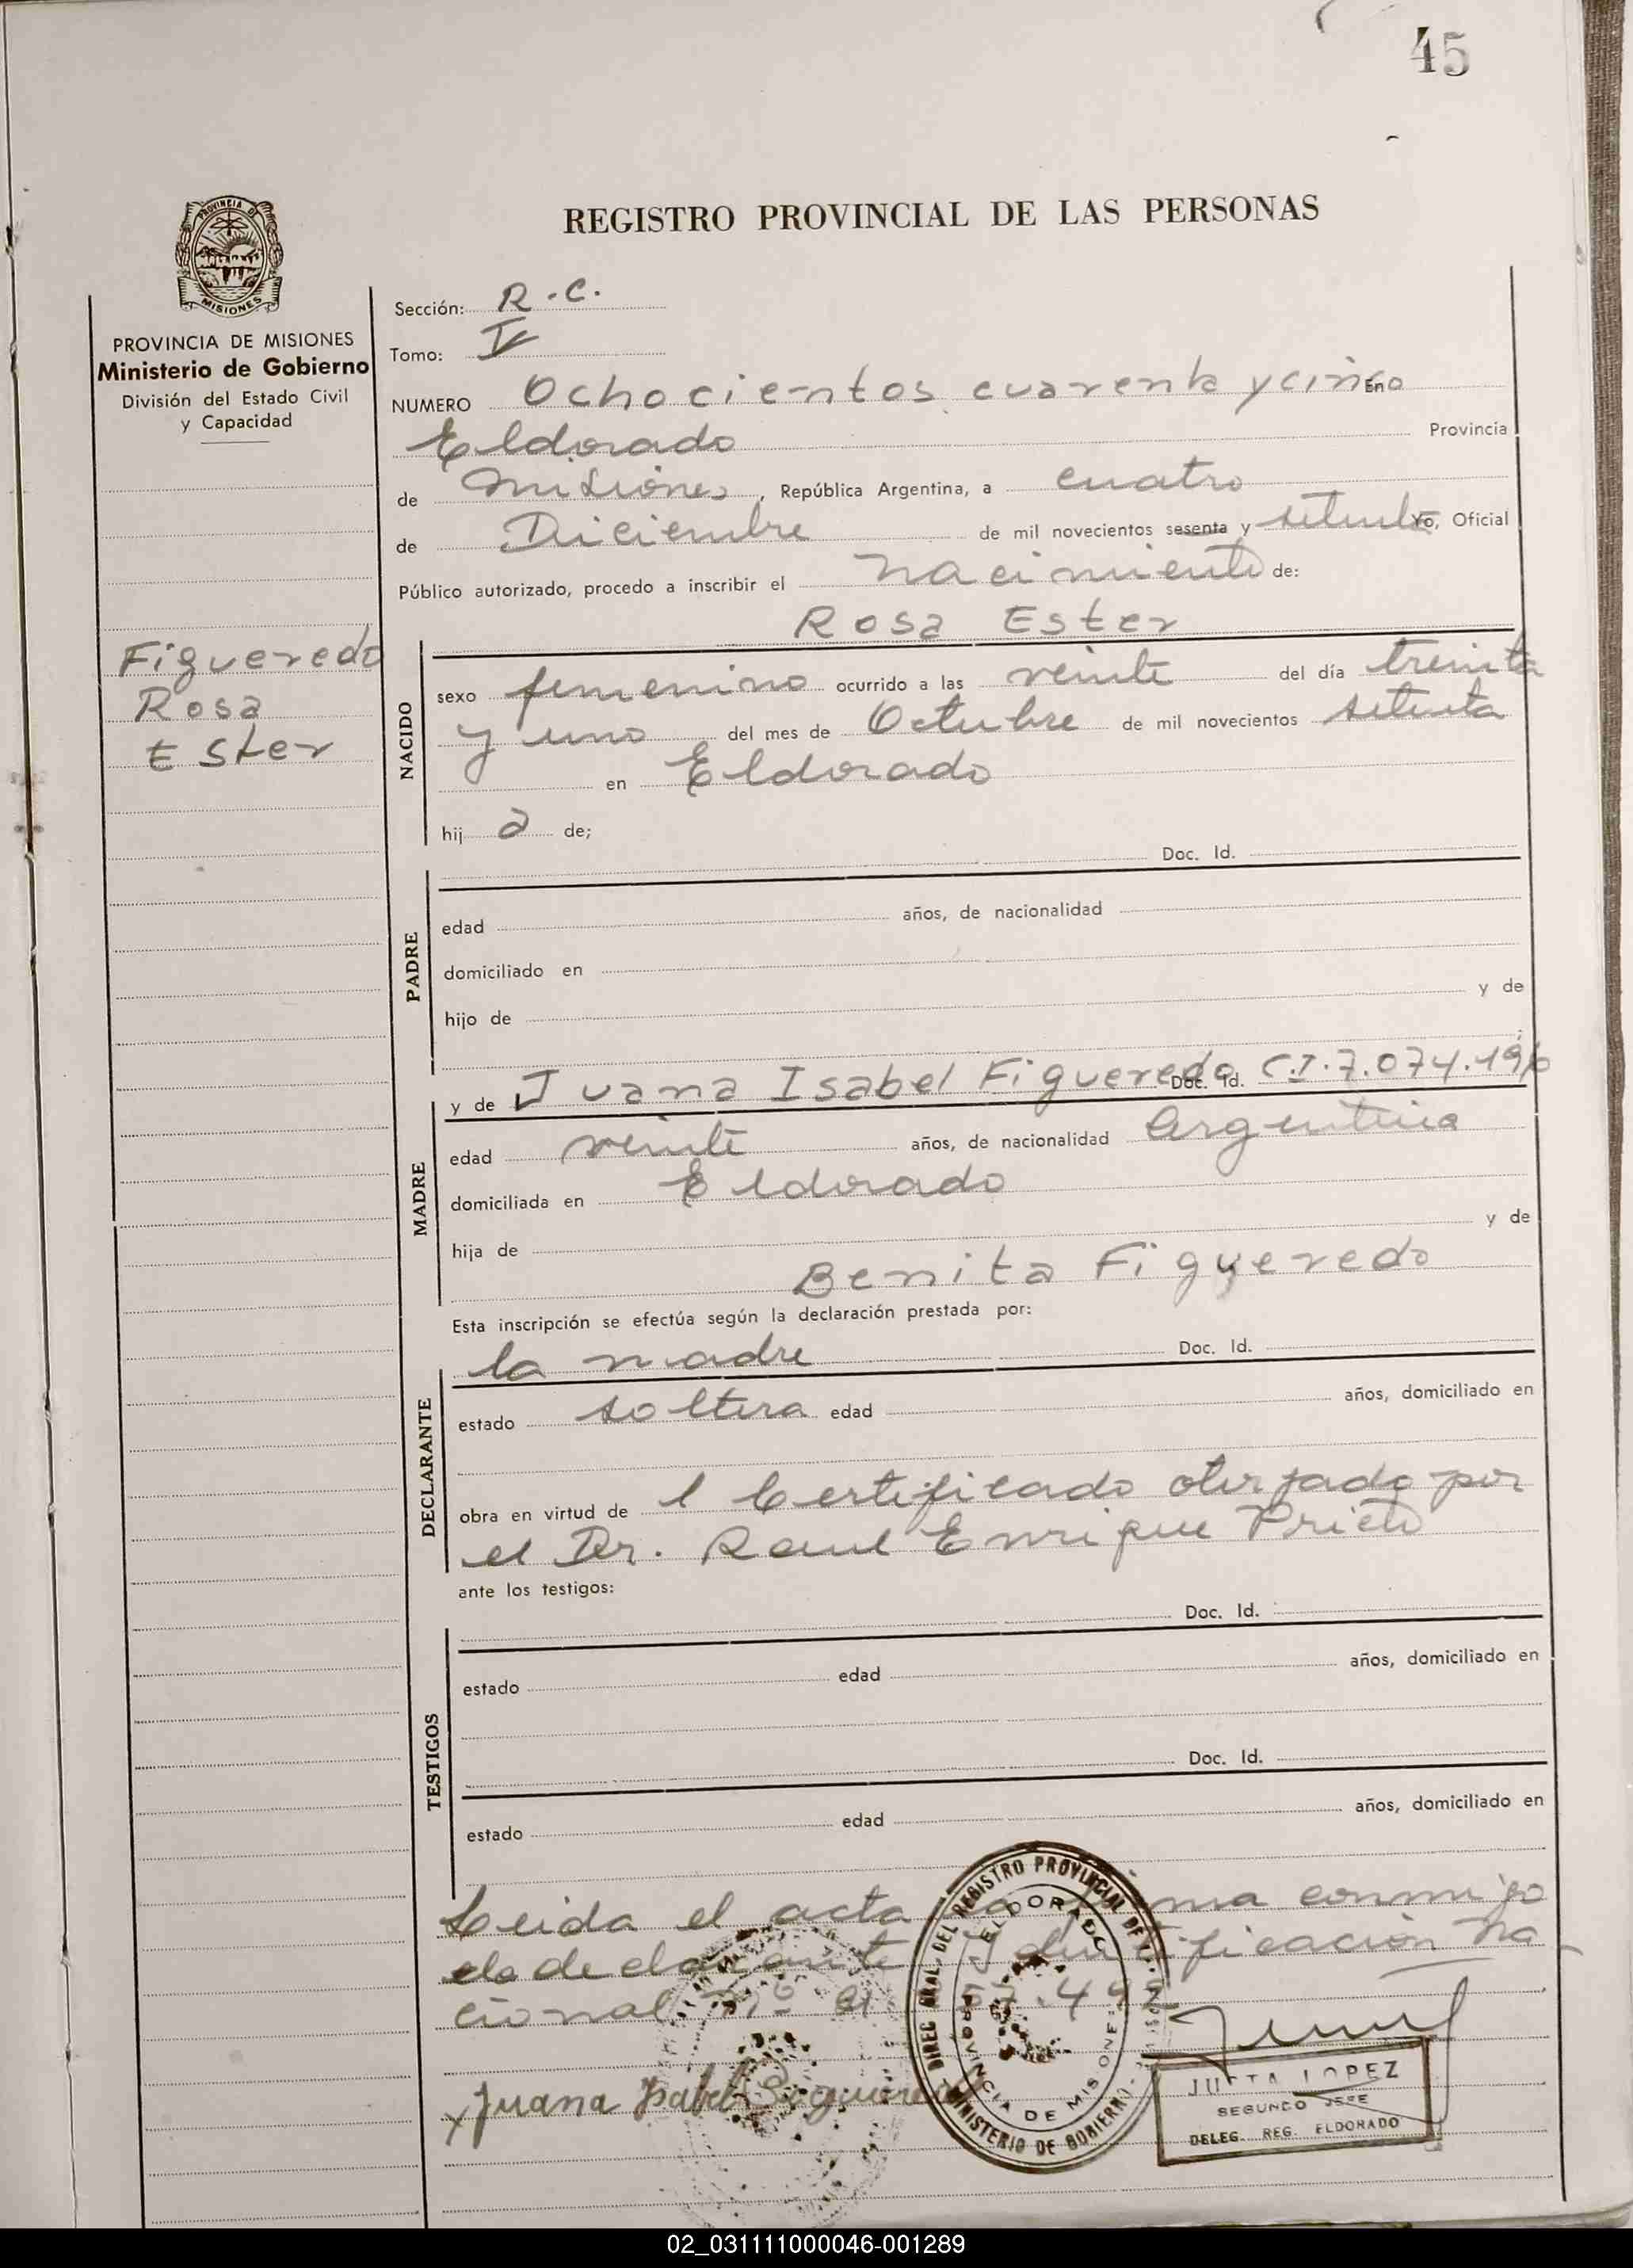 45
PROVINCIA DE
MISIONES
REGISTRO PROVINCIAL DE LAS PERSONAS
PROVINCIA DE MISIONES
Ministerio de Gobierno
División del Estado Civil
y Capacidad
Figueredo
Rosa
Ester
Sección: R.C.
Tomo: V
NUMERO Ochocientos cuarenta y cinco En
Eldorado Provincia
de Misiones, República Argentina, a cuatro
de Diciembre de mil novecientos sesenta y setenta Yo, Oficial
Público autorizado, procedo a inscribir el nacimiento de:
Rosa Ester
NACIDO
sexo femenino ocurrido a las veinte del día treinta
y uno del mes de Octubre de mil novecientos setenta
en Eldorado
hij a de;
PADRE
Doc. Id.
edad años, de nacionalidad
domiciliado en
hijo de y de
MADRE
y de Juana Isabel Figueredo Doc. Id. C.I. 7.074.196
edad veinte años, de nacionalidad Argentina
domiciliada en Eldorado
hija de y de
Benita Figueredo
Esta inscripción se efectúa según la declaración prestada por:
DECLARANTE
la madre Doc. Id.
estado soltera edad años, domiciliado en
obra en virtud de l Certificado otorgado por
el Dr. Raul Enrique Prieto
ante los testigos:
TESTIGOS
Doc. Id.
estado edad años, domiciliado en
Doc. Id.
estado edad años, domiciliado en
Leida el acta la firma conmigo
la declarante Identificación Na
cional Nº
Juana Isabel Figueredo
DIREC. GRAL. DEL REGISTRO PROVINCIAL DE
ELDORADO
PROVINCIA DE MISIONES
MINISTERIO DE GOBIERNO
JUSTA LOPEZ
SEGUNDO JEFE
DELEG. REG. ELDORADO
02_031111000046-001289